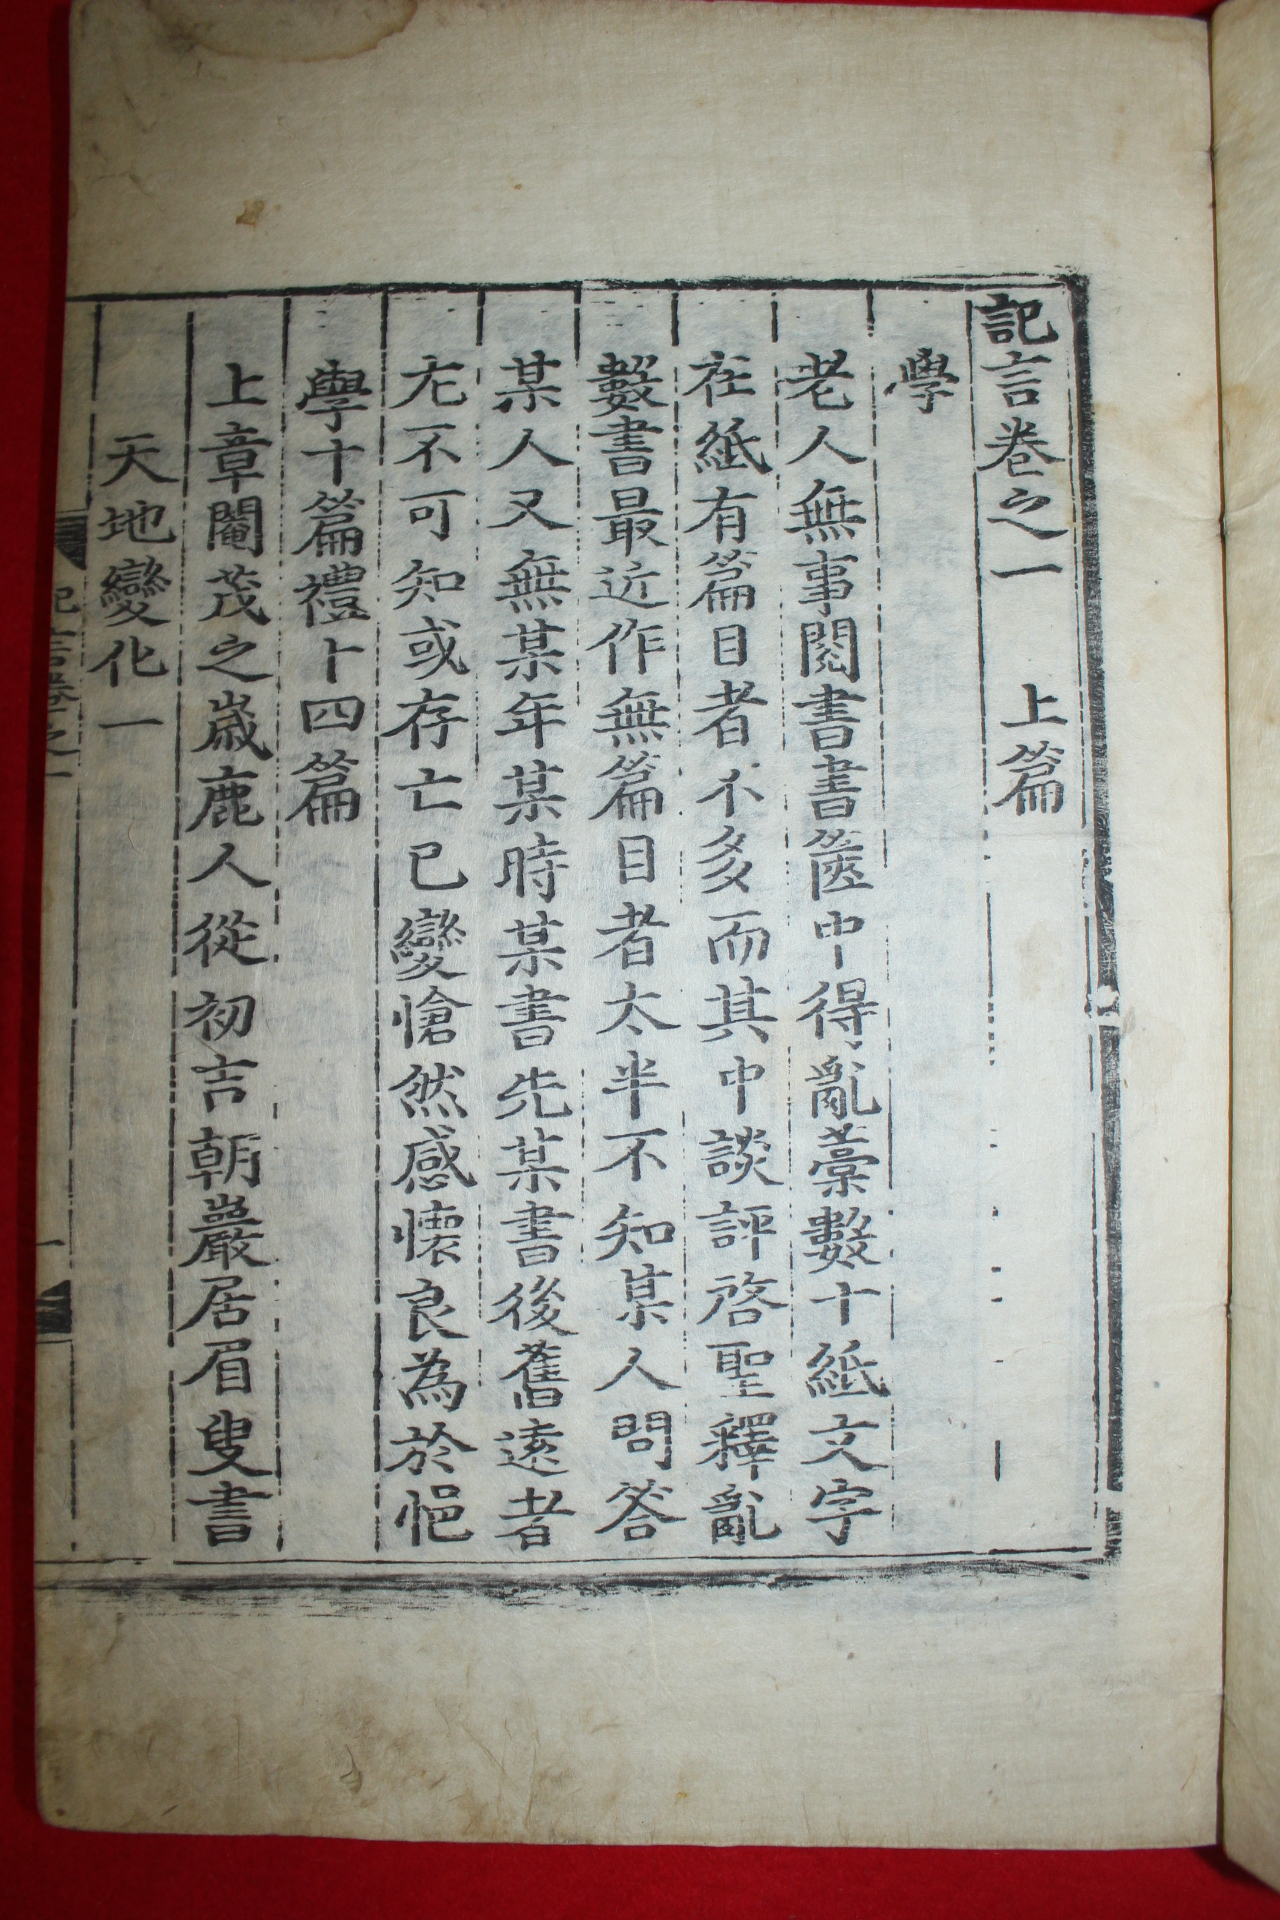 記言卷之一 上篇
學
老人無事閱書書篋中得亂藁數十紙文字
在紙有篇目者不多而其中談評啓聖釋亂
數書最近作無篇目者太半不知某人問答
某人又無某年某時某書先某書後舊遠者
尤不可知或存亡已變愴然感懷良為於悒
學十篇禮卜四篇
上章閹茂之歲鹿人從初吉朝巖居眉叟書
天地變化一
記言卷之一
一